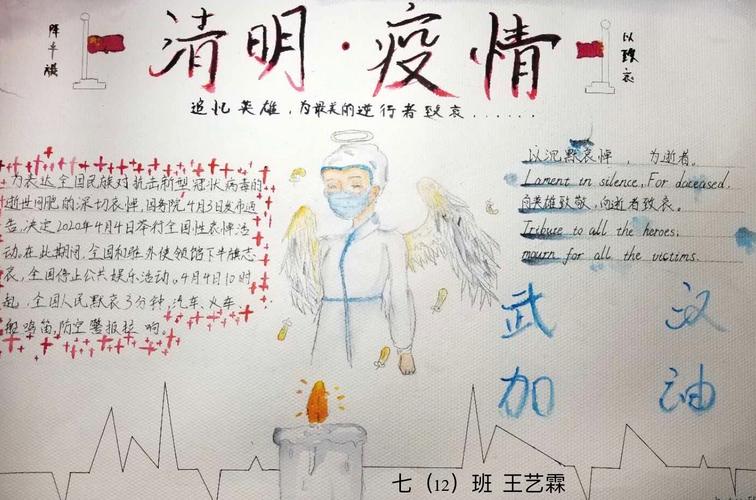 降半旗
清明·疫情
以致哀
追忆英雄，为最美的逆行者致哀......
为表达全国民族对抗击新型冠状病毒的
逝世同胞的深切哀悼，国务院4月3日发布通
告，决定2020年4月4日举行全国性哀悼活
动，在此期间，全国和驻外使领馆下半旗志
哀，全国停止公共娱乐活动。4月4日10时
起，全国人民默哀3分钟，汽车、火车
舰鸣笛，防空警报拉响。
以沉默哀悼，为逝者。
Lament in silence, For doceased.
向英雄致敬，向逝者致哀。
Tribute to all the heroes.
mourn for all the victims.
武汉
加油
七（12）班 王艺霖